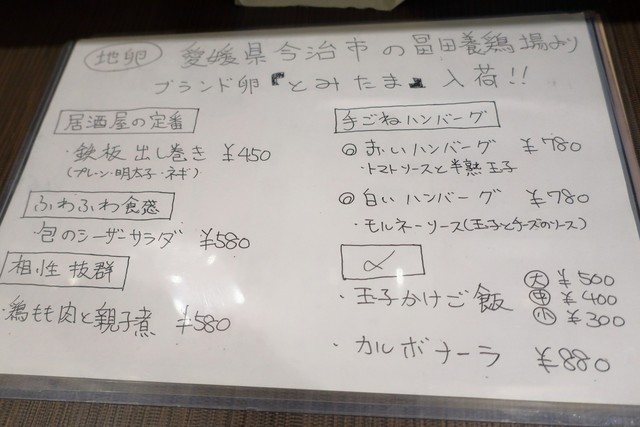 地卵 愛媛県今治市の冨田養鶏場より
ブランド卵『とみたま』入荷!!
居酒屋の定番
・鉄板出し巻き ¥450
(プレーン・明太子・ネギ)
ふわふわ食感
・包のシーザーサラダ ¥580
相性抜群
・鶏もも肉と親子煮 ¥580
手ごねハンバーグ
◎赤いハンバーグ ¥780
・トマトソースと半熟玉子
◎白いハンバーグ ¥780
・モルネーソース(玉子とチーズのソース)
〆
・玉子かけご飯 大 ¥500
中 ¥400
小 ¥300
・カルボナーラ ¥880